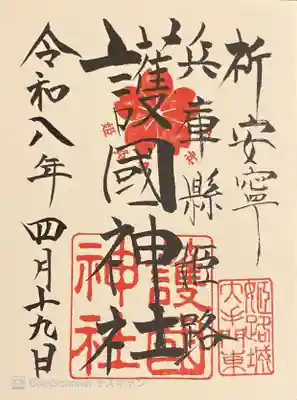 祈安寧
兵庫縣姫路
護國神社
令和八年四月十九日
護国
神社
姫路城
大手門東
CamScanner でスキャン